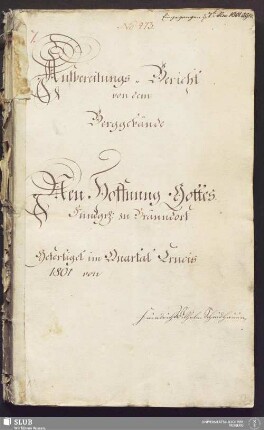 No 473.
Aufbereitungs-Bericht
von dem
Berggebäude
Neu Hoffnung Gottes
Fundgr: zu Bräunsdorf
Gefertiget im Quartal Crucis
1801 von
SLUB